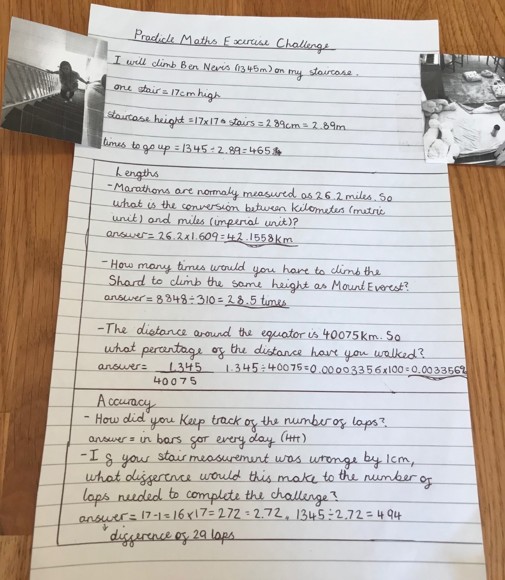 Pradicle Maths Exercise Challenge
I will climb Ben Nevis (1345m) on my staircase.
one stair = 17cm high
staircase height = 17x17 stairs = 289cm = 2.89m
times to go up = 1345 ÷ 2.89 = 465
Lengths
- Marathons are normaly measured as 26.2 miles. So
what is the conversion between kilometers (metric
unit) and miles (imperial unit)?
answer = 26.2x1.609 = 42.1558km
- How many times would you have to climb the
Shard to climb the same height as Mount Everest?
answer = 8848÷310 = 28.5 times
- The distance around the equator is 40075km. So
what percentage of the distance have you walked?
answer = 1.345 1.345÷40075=0.00003356x100=0.003356%
40075
Accuracy
- How did you keep track of the number of laps?
answer = in bars for every day (卌)
- If your stair measurement was wronge by 1cm,
what difference would this make to the number of
laps needed to complete the challenge?
answer = 17-1=16x17=272=2.72. 1345÷2.72=494
↓ difference of 29 laps